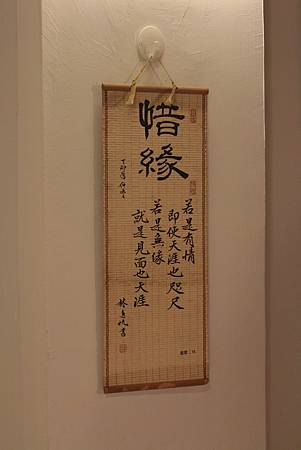 惜緣
若是有情
即使天涯也咫尺
若是無緣
就是見面也天涯